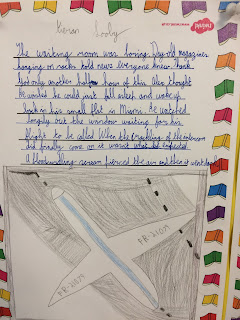 Kieran
twinkl
The waiting room was boring. Day-old magazines
hanging on racks told news everyone knew. Thank
God only another half hour of this. Alex thought
He wished he could just fall asleep and wake up
back in his small flat in Miami. He watched
longily out the window waiting for his
flight to be called. When the crackling of the intercom
did finally come on it wasnt what he expected.
A bloodcurdling scream pierced the air and then it went dark
FR-2107
FR-2107